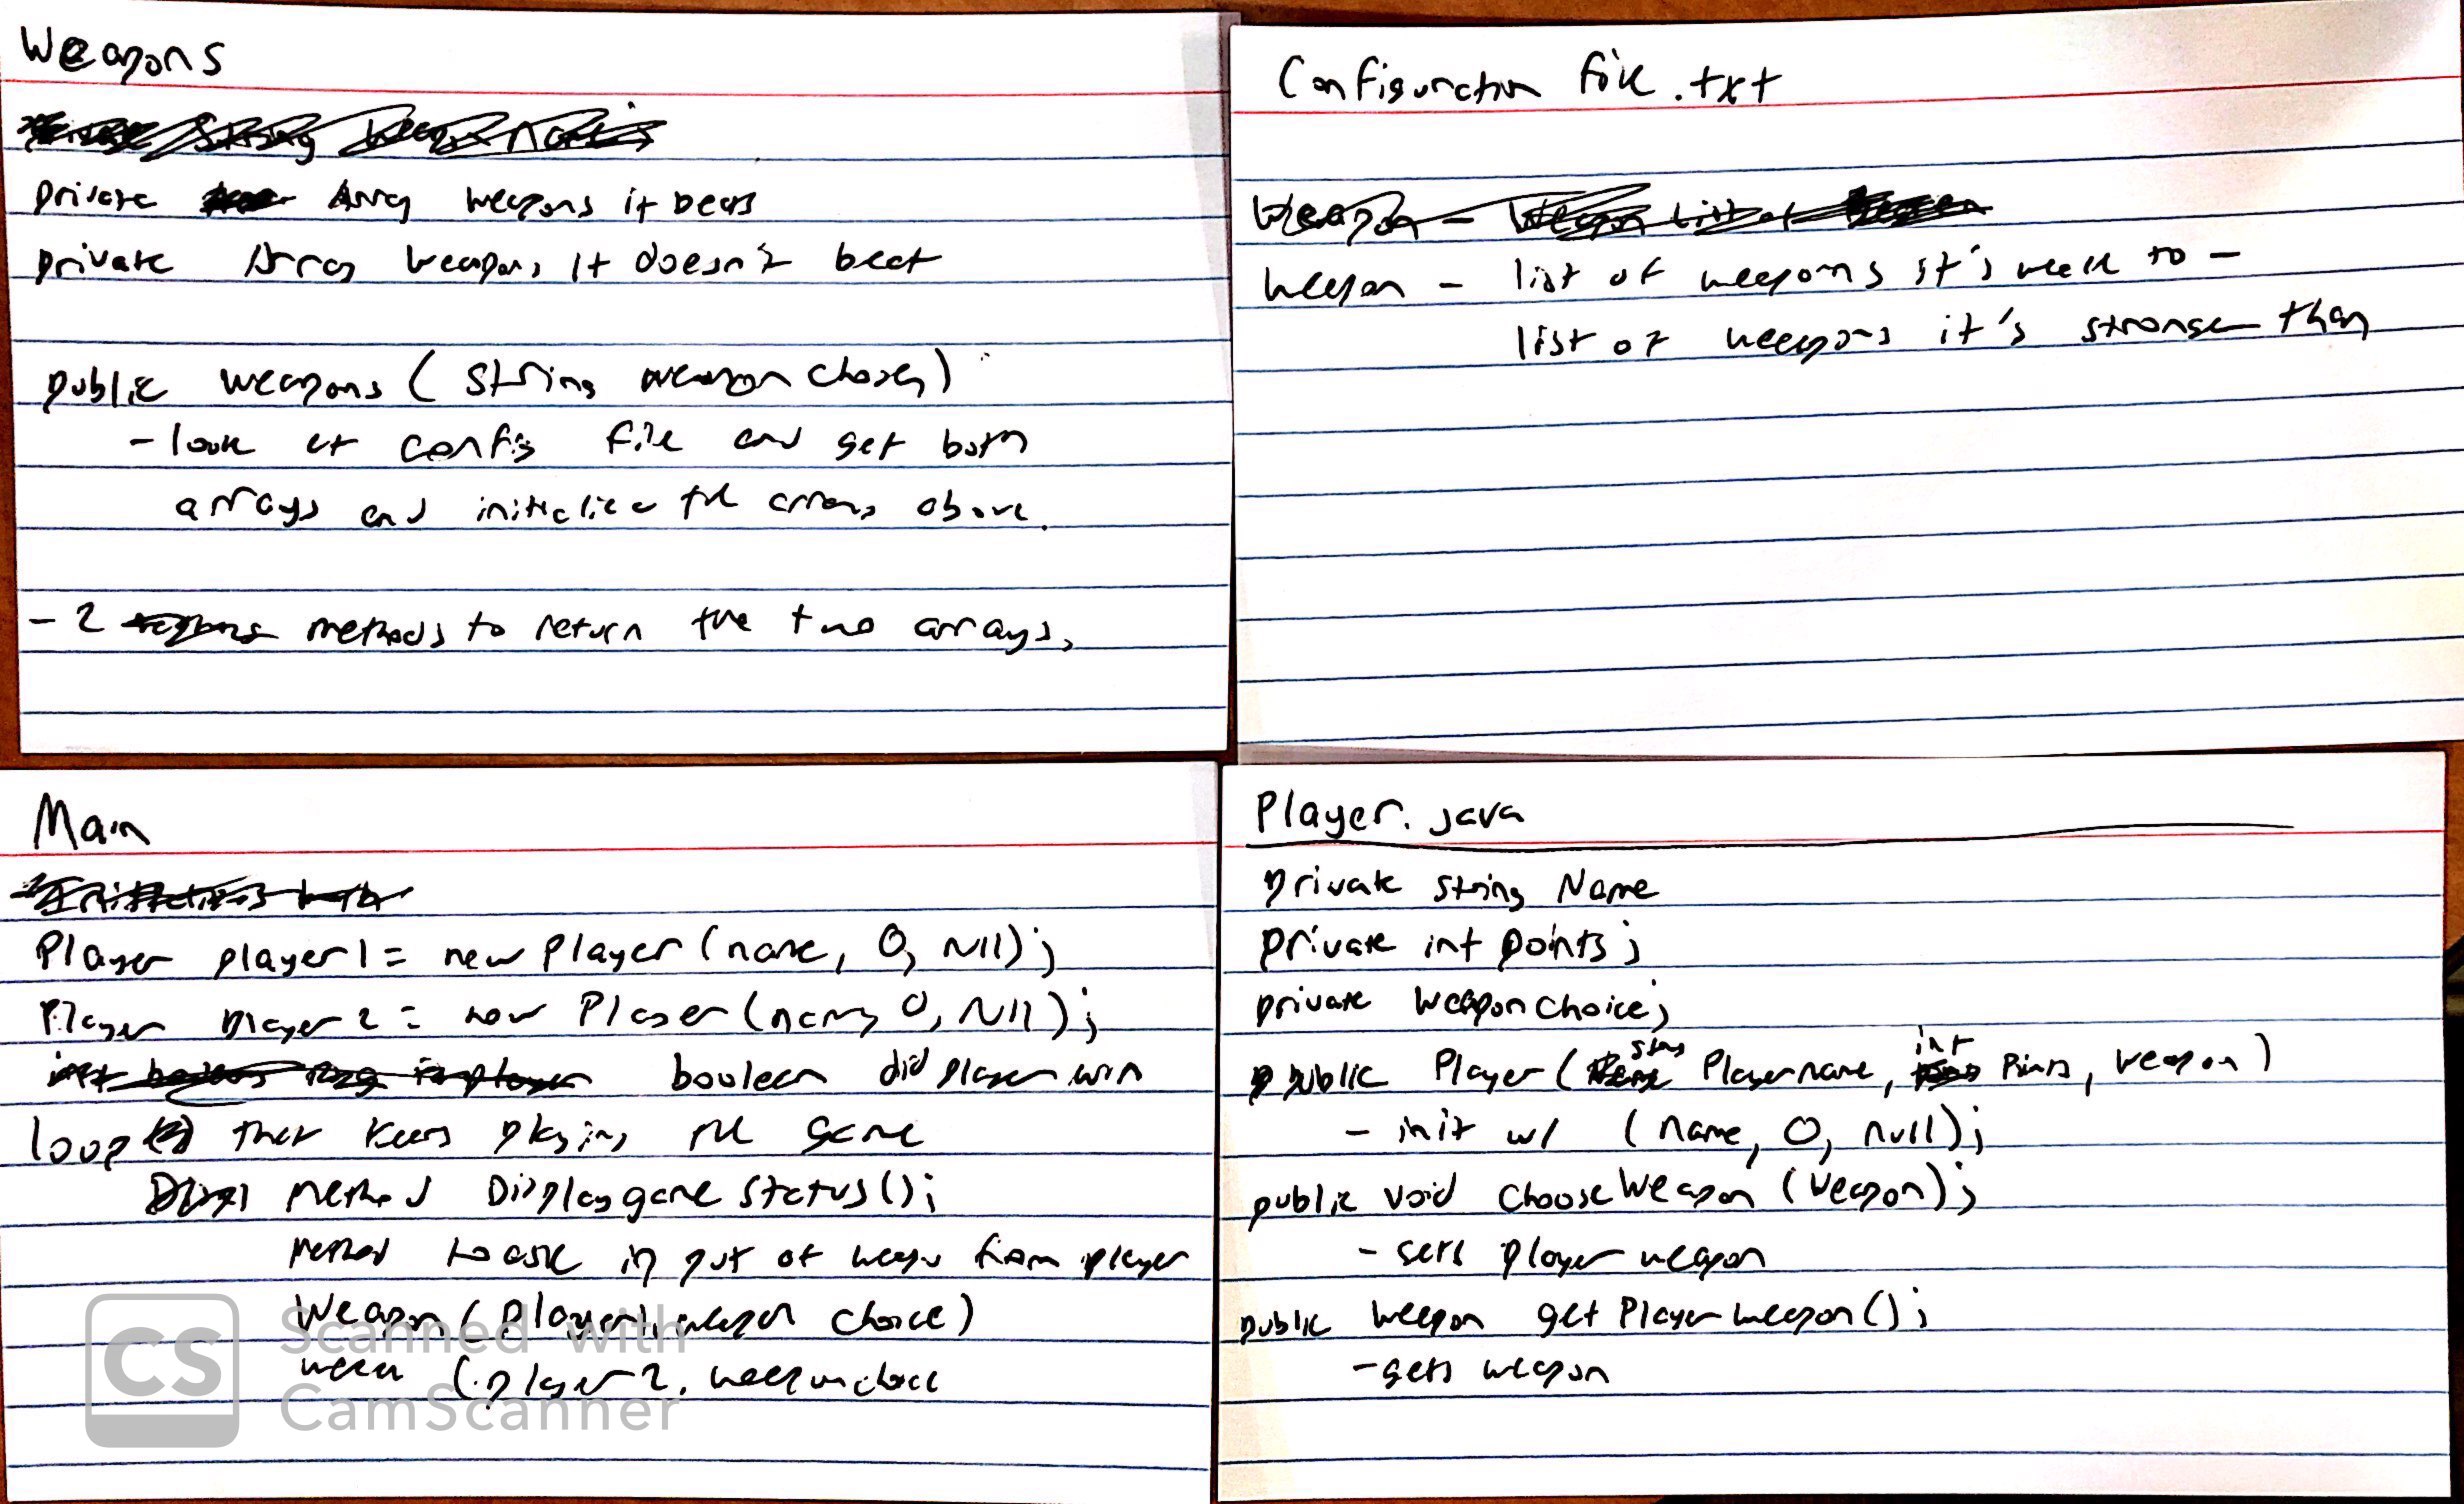 Weapons
private Array weapons it beats
private Array weapons it doesn't beat
public weapons (String weapon chosen)
- look at config file and get both
arrays and initialize the arrays above.
- 2 methods to return the two arrays.
Configuration file .txt
weapon - list of weapons it's weak to -
list of weapons it's stronger than
Main
Player player1 = new Player (name, 0, Null);
Player player2 = new Player (name, 0, Null);
boolean did player win
loop that keeps playing the game
method Display game status();
method to ask input of weapon from player
Weapon (player1. weapon choice)
(player2. weapon choice
Player. java
private string Name
private int points;
private weapon choice;
public Player ( Player name, int Points, weapon)
- init w/ (name, 0, null);
public void choose Weapon (Weapon);
- sets player weapon
public weapon get Player weapon();
- gets weapon
CS
Scanned with
CamScanner